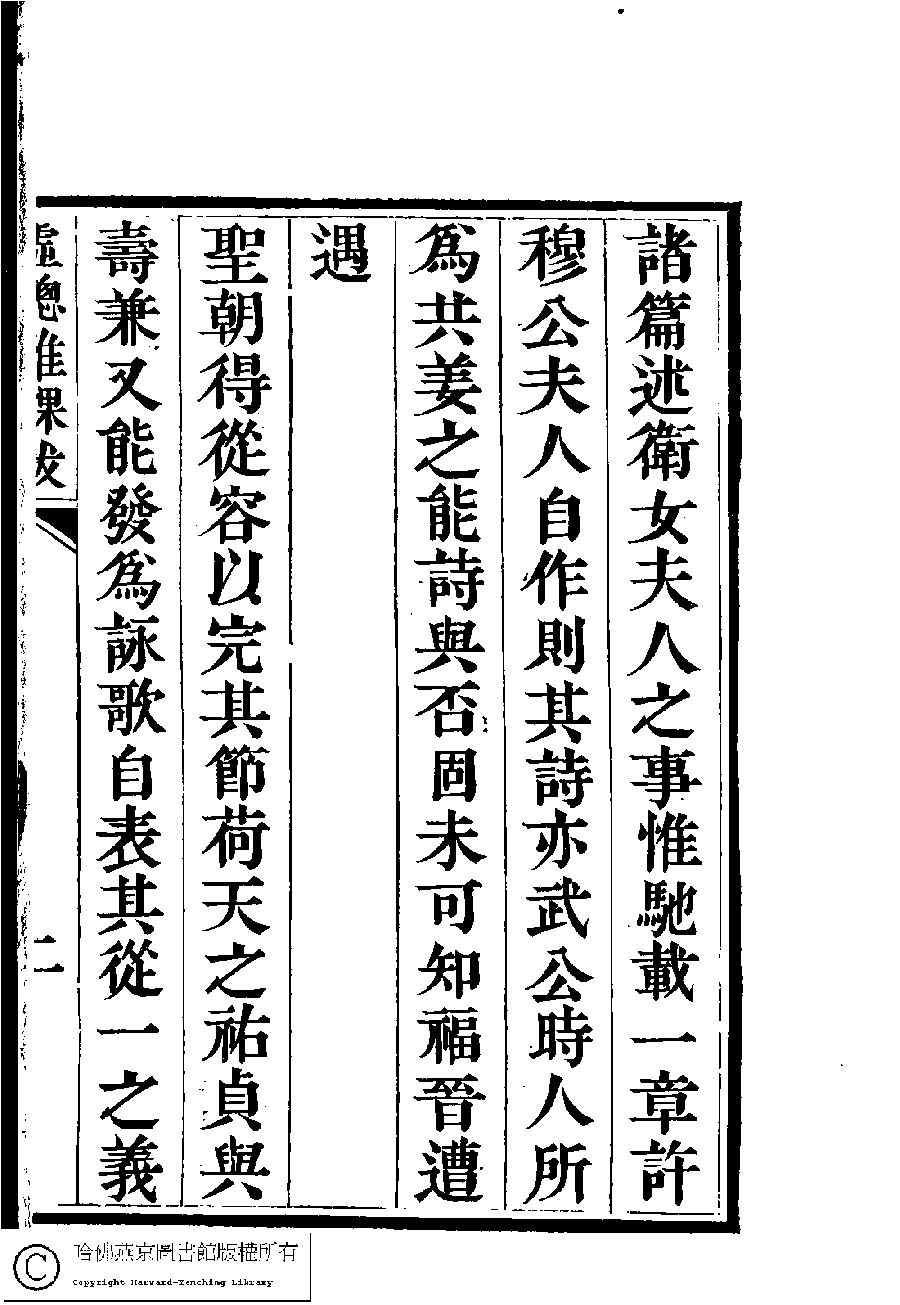 諸篇述衛女夫人之事惟馳載一章許
穆公夫人自作則其詩亦武公時人所
為共姜之能詩與否固未可知福晉遭
遇
聖朝得從容以完其節荷天之祐貞與
壽兼又能發為詠歌自表其從一之義
虛窗雅課跋
二
哈佛燕京圖書館版權所有
Copyright Harvard-Yenching Library